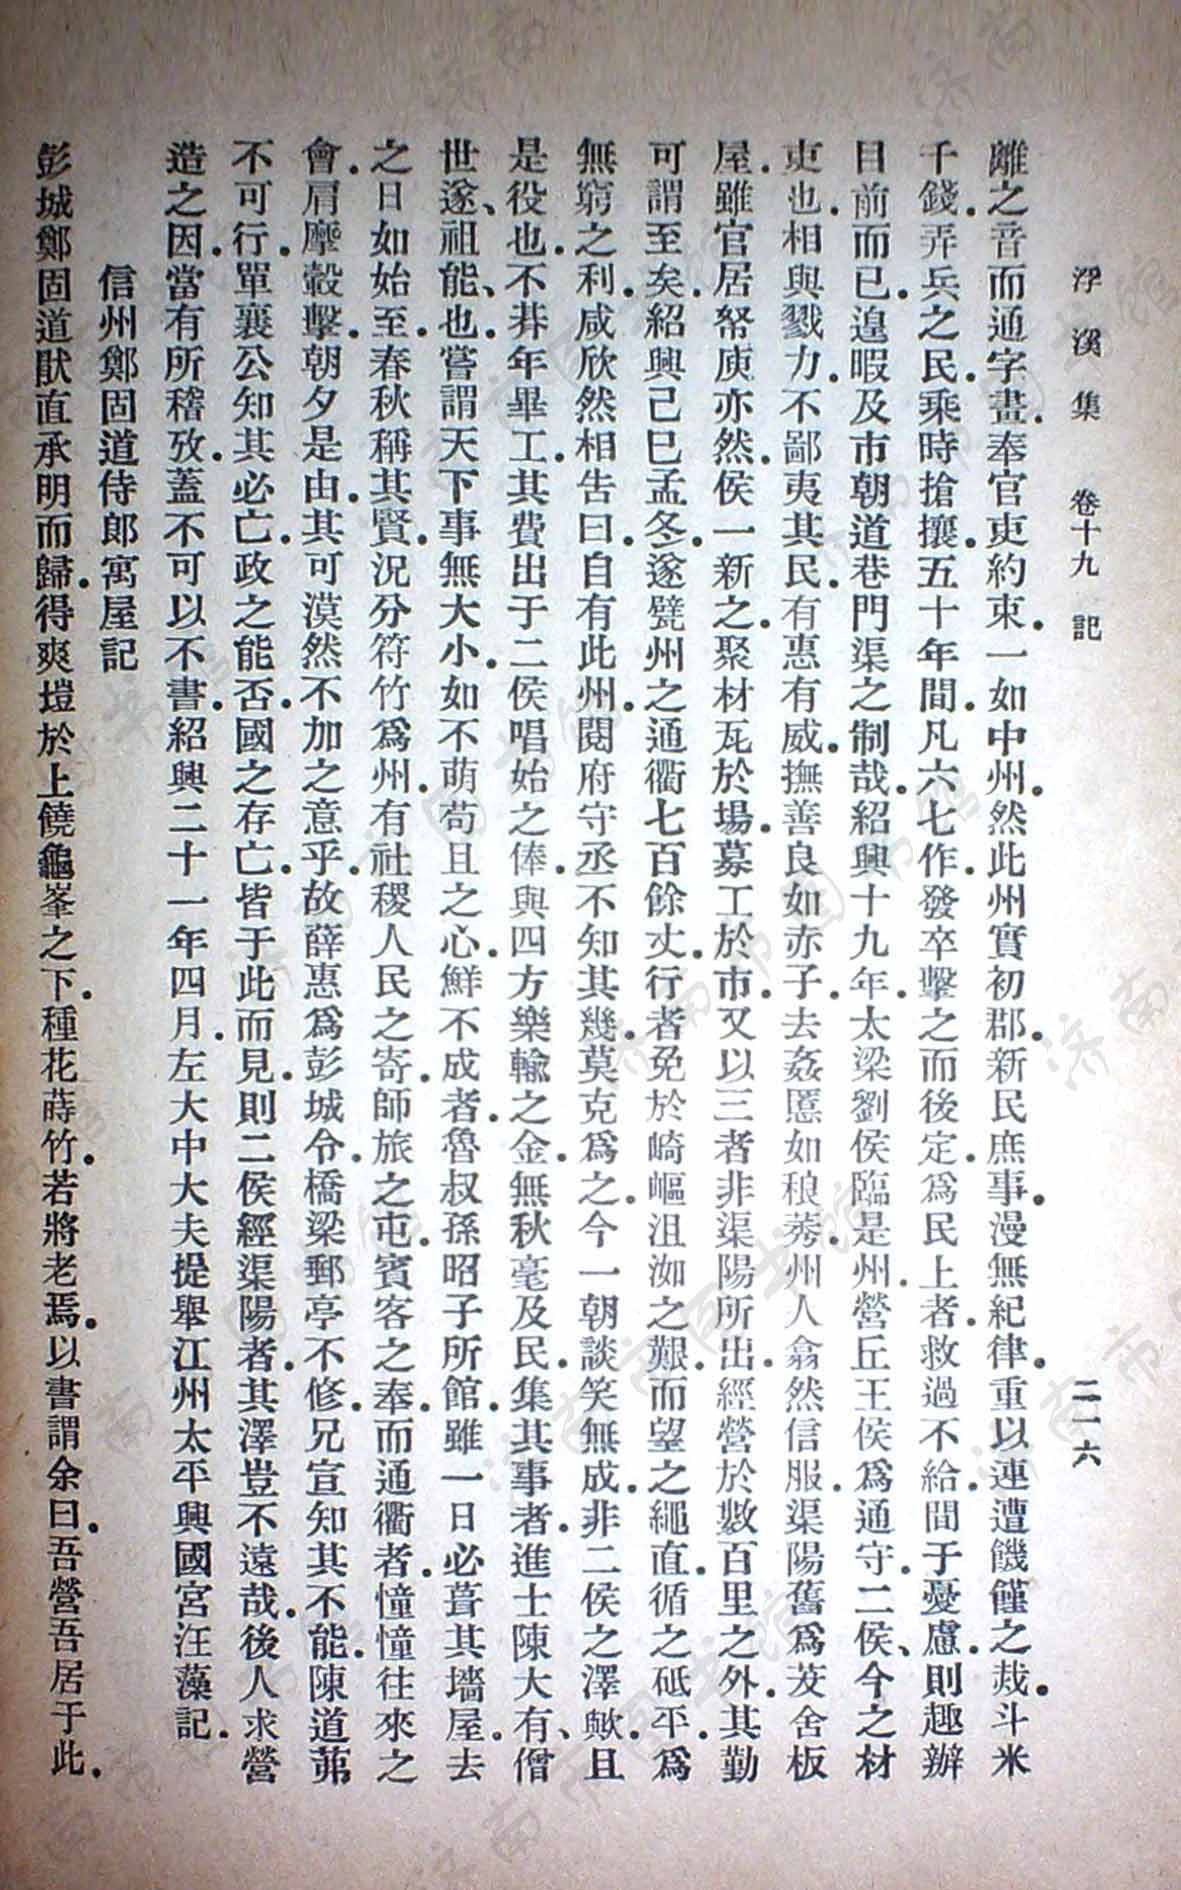 浮溪集 卷十九 記 二一六
離之音而通字畫.奉官吏約束.一如中州.然此州實初郡.新民庶事.漫無紀律.重以連遭饑饉之烖.斗米
千錢.弄兵之民.乘時搶攘.五十年間.凡六七作.發卒擊之而後定.爲民上者.救過不給.間于憂慮.則趣辦
目前而已.遑暇及市朝道巷門渠之制哉.紹興十九年.太梁劉侯臨是州.營丘王侯爲通守.二侯、今之材
吏也.相與戮力.不鄙夷其民.有惠有威.撫善良如赤子.去姦慝如稂莠.州人翕然信服.渠陽舊爲茇舍板
屋.雖官居帑庾亦然.侯一新之.聚材瓦於場.募工於市.又以三者非渠陽所出.經營於數百里之外.其勤
可謂至矣.紹興己巳孟冬.遂甓州之通衢七百餘丈.行者免於崎嶇沮洳之艱.而望之繩直.循之砥平.爲
無窮之利.咸欣然相告曰.自有此州.閱府守丞不知其幾.莫克爲之.今一朝談笑無成.非二侯之澤歟.且
是役也.不朞年畢工.其費出于二侯唱始之俸.與四方樂輸之金.無秋毫及民.集其事者.進士陳大有、僧
世遂、祖能、也.嘗謂天下事無大小.如不萌苟且之心.鮮不成者.魯叔孫昭子所館.雖一日必葺其墻屋.去
之日如始至.春秋稱其賢.況分符竹爲州.有社稷人民之寄.師旅之屯.賓客之奉.而通衢者.憧憧往來之
會.肩摩轂擊.朝夕是由.其可漠然不加之意乎.故薛惠爲彭城令.橋梁郵亭不修.兄宣知其不能.陳道茀
不可行.單襄公知其必亡.政之能否.國之存亡.皆于此而見.則二侯經渠陽者.其澤豈不遠哉.後人求營
造之因.當有所稽攷.蓋不可以不書.紹興二十一年四月.左大中大夫提舉江州太平興國宮汪藻記.
信州鄭固道侍郎寓屋記
彭城鄭固道猒直承明而歸.得爽塏於上饒龜峯之下.種花蒔竹.若將老焉.以書謂余曰.吾營吾居于此.